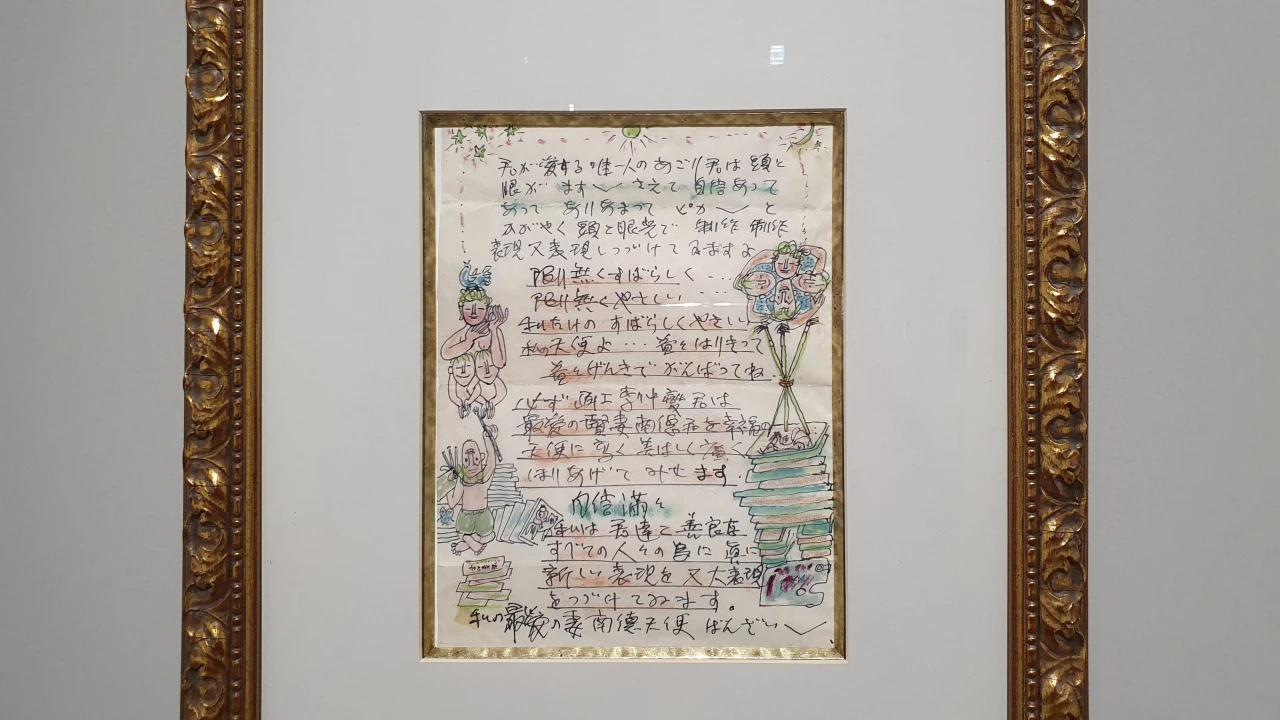 君が愛する唯一人のあごり君は頭と
眼が ます〳〵さえて 自信あって
あって ありあまって ピカ〳〵と
かがやく 頭と眼光で 制作 制作
表現又表現しつづけてゐますよ
限り無くすばらしく・・・
限り無くやさしい・・・
私だけの すばらしくやさしい
私の天使よ・・・益々はりきって
益々げんきでがんばってね
必ず 画工李仲燮君は
最愛の賢妻南徳君を幸福の
天使に 高く 美しく 広く
はりあげて みせます.
自信満々
私は 君達と 善良な
すべての人々の為に 真に
新しい 表現を 又 大表現
をつづけてゐます。
私の最愛の妻南徳天使 ばんざい〳〵